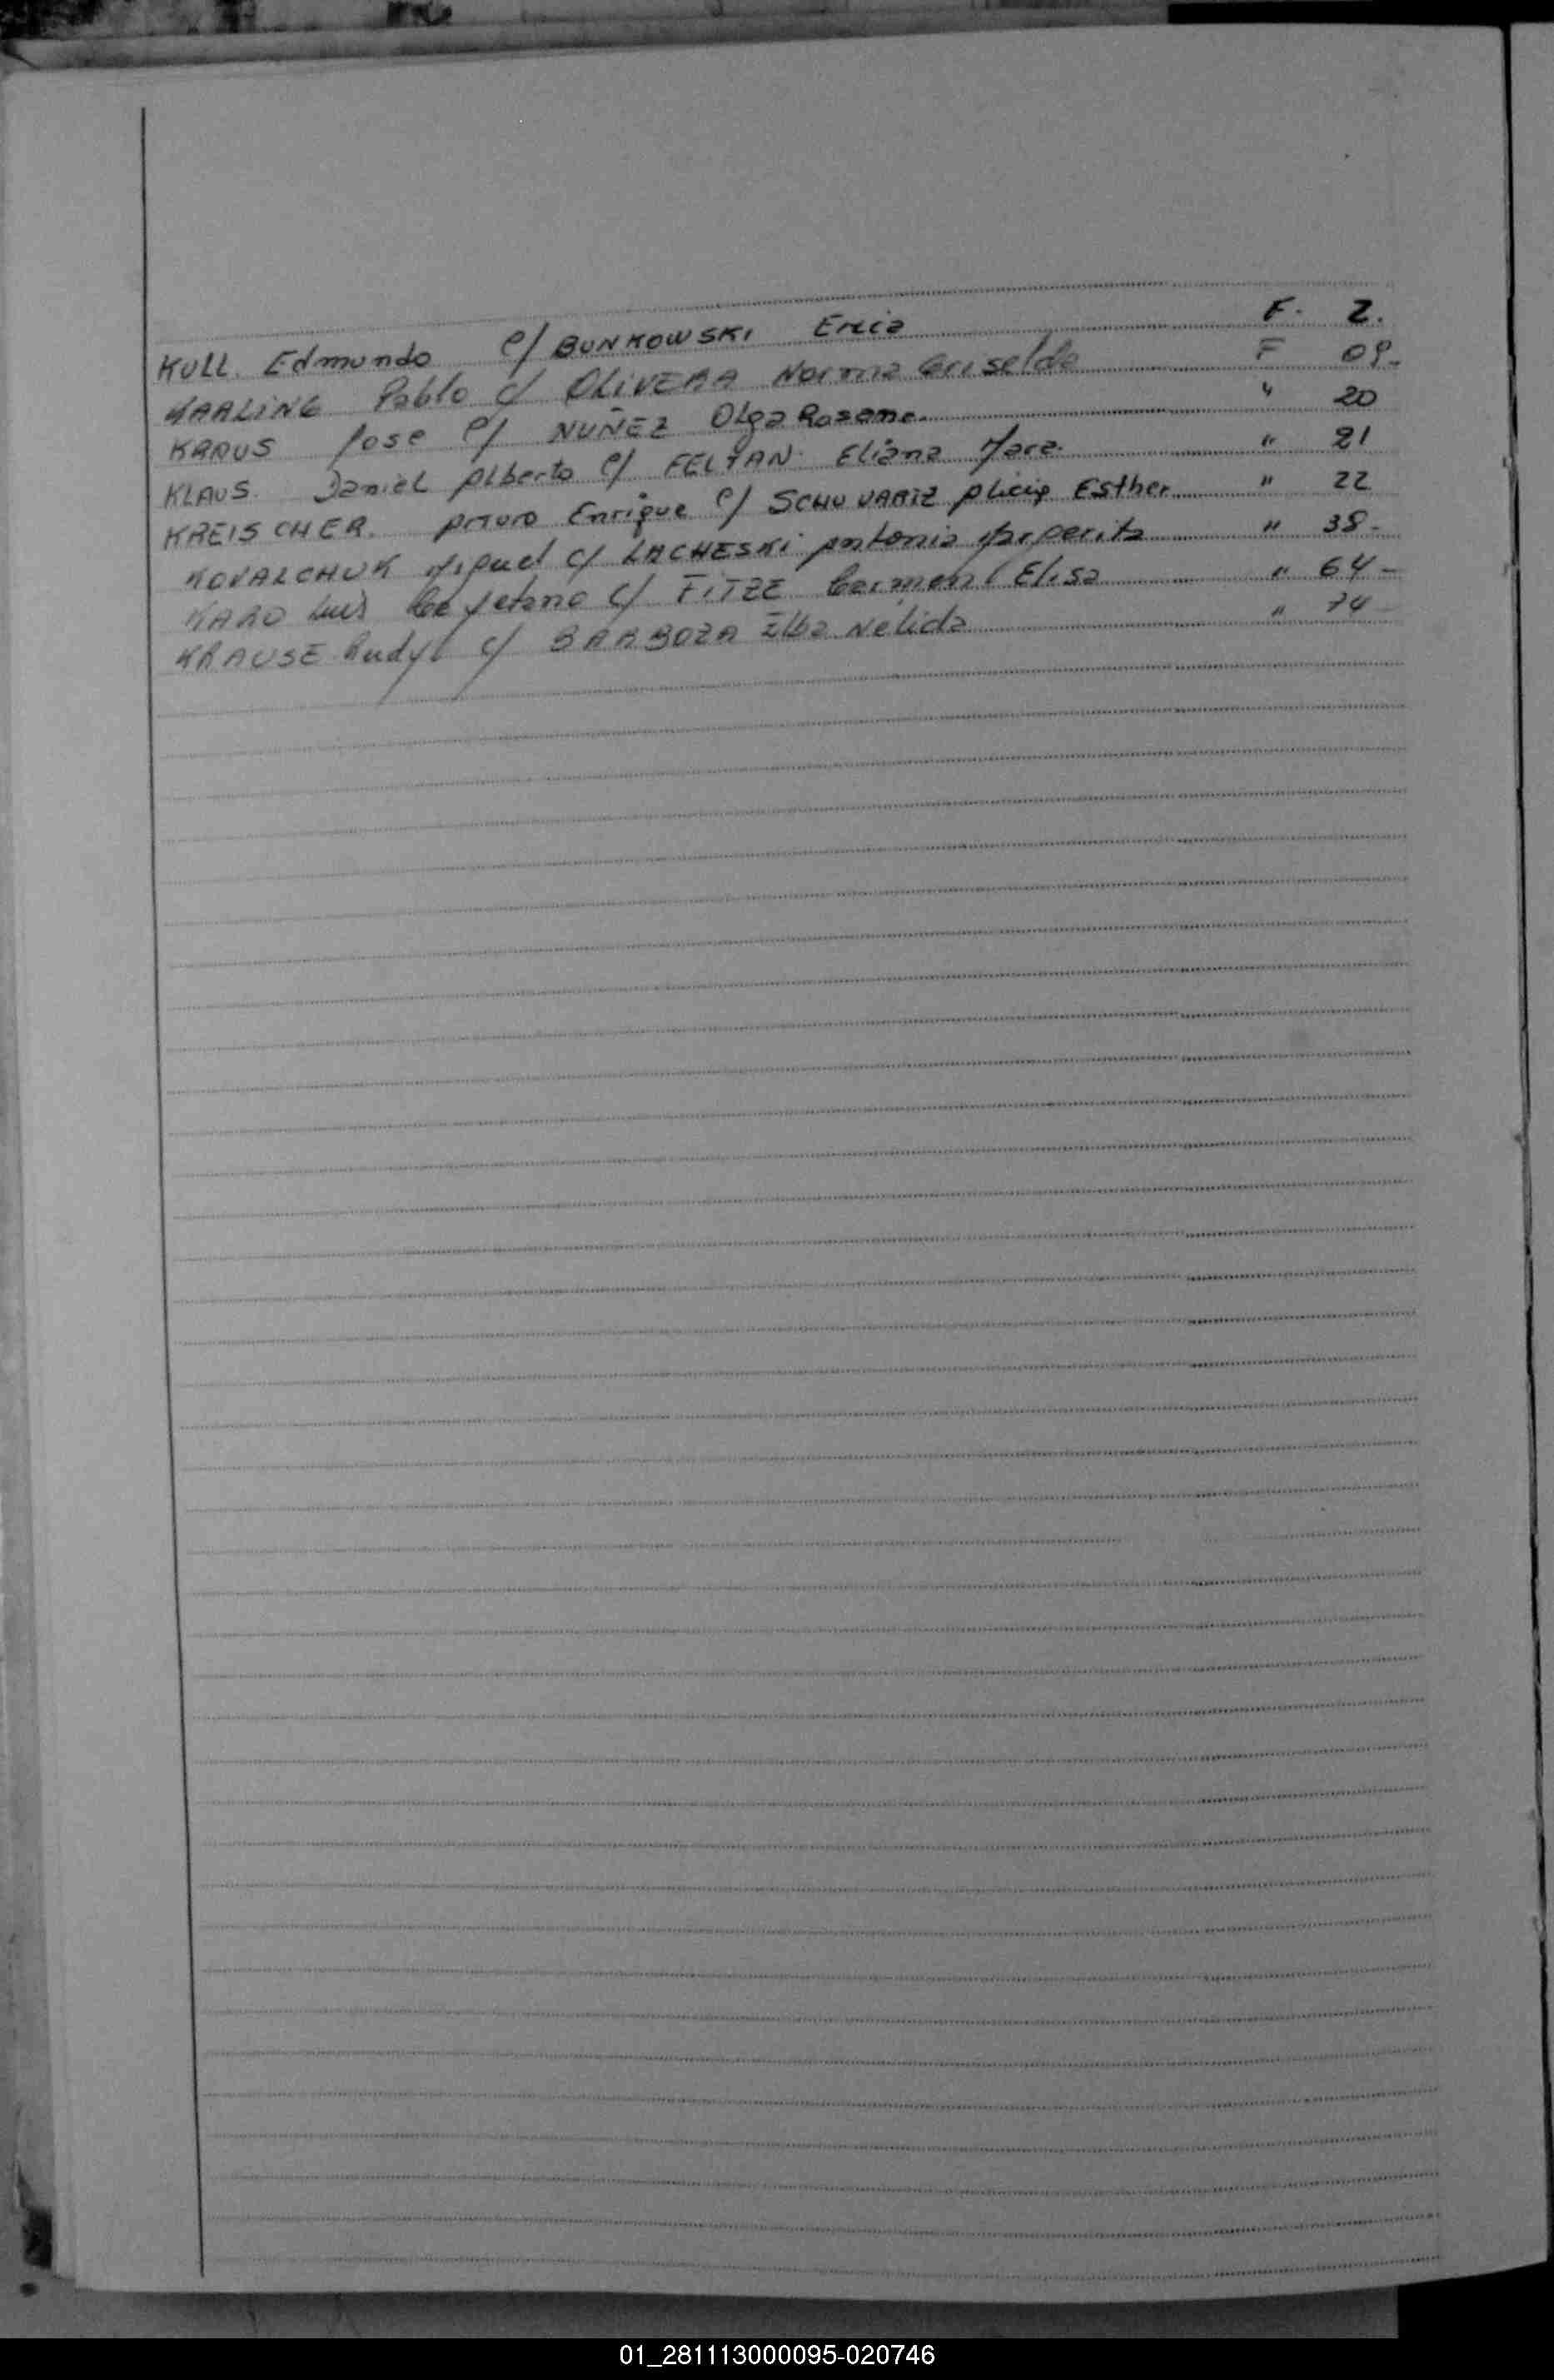 KULL. Edmundo c/ BUNKOWSKI Erica F. 2.
KARLING Pablo c/ OLIVERA Norma Griselda F 09-
KRAUS Jose c/ NUÑEZ Olga Rosana. " 20
KLAUS. Daniel Alberto c/ FELTAN Eliana Mara. " 21
KREISCHER. Arturo Enrique c/ SCHUVARTZ Alicia Esther " 22
KOVALCHUK Miguel c/ LACHESKI Antonia Margarita " 38-
KARO Luis Cayetano c/ FITZE Carmen Elisa " 64-
KRAUSE Rudy c/ BARBOZA Elba Nelida " 74-
01_281113000095-020746